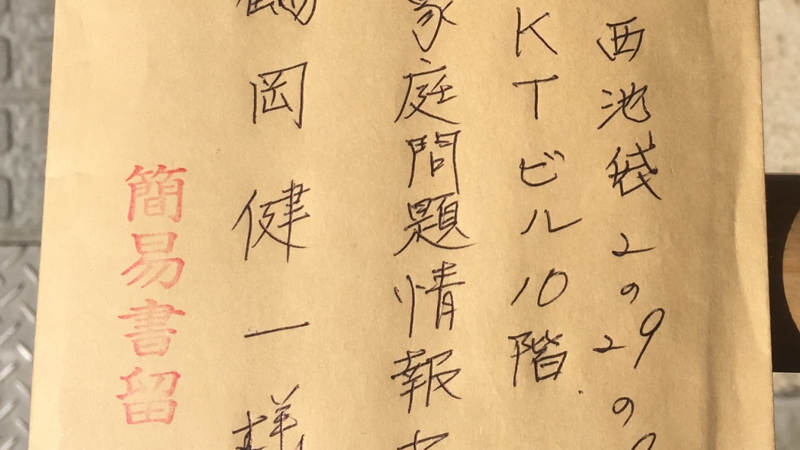 西池袋2の29の
KTビル10階
家庭問題情報
岡健一様
簡易書留